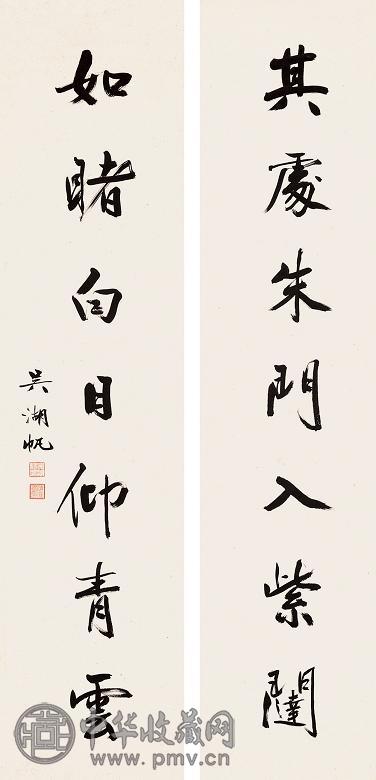 其處朱門入紫闥
如睹白日仰青雲
吳湖帆
中华收藏网
www.pmv.cn